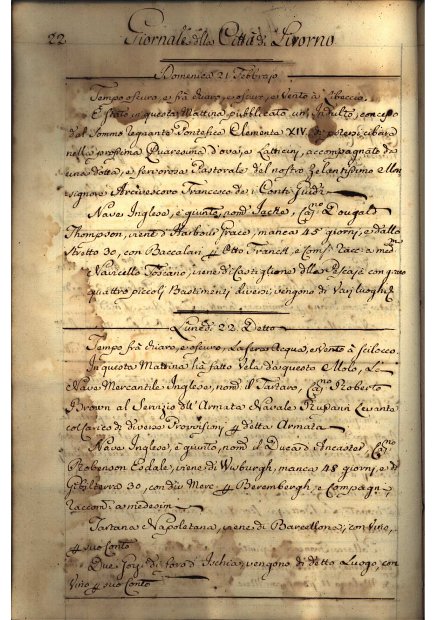 22 Giornale della Città di Livorno
Domenica 21 Febbrajo
Tempo oscuro, e frà chiaro, e oscuro, e Vento à Libeccio.
È stato in questa Mattina pubblicato un Indulto, concesso
dal Sommo regnante Pontefice Clemente XIV. di potersi cibare
nella prossima Quaresima d'ova, e Latticinj, accompagnato da
una dotta, e fervorosa Pastorale del nostro zelantissimo Mon
signore Arcivescovo Francesco de i Conti Guidi
Nave Inglese, è giunta, nom.ª Jacke, Cap.no Dougald
Thompson, viene d'Harbour Grace, manca 45 giorni, e dallo
Stretto 30, con Baccalari p Otto Franck, e Comp.i racc: a med:mi
Navicello Toscano, viene di Castiglione della Pescaja con grano
quattro piccoli Bastimenti diversi, vengono di Varj luoghi &
Lunedì 22 Detto
Tempo frà chiaro, e oscuro, la sera Acqua, e Vento à Scilocco.
In questa Mattina hà fatto Vela da questo Molo, La
Nave Mercantile Inglese, nom.ª il Tartaro, Cap.no Roberto
Brown al Servizio dell'Armata Navale Russa in Levante
col carico di diverse Provvisioni p detta Armata
Nave Inglese, è giunta, nom.ª il Duca d'Ancaster, Cap.no
Robenson Esdale, viene di Wisburgh, manca 48 giorni, e di
Gibilterra 30, con div.e Merc. p Berembergh, e Compagn.i
raccom: a medesim.i
Tartana Napoletana, viene di Barcellona, con Vino,
p suo Conto
Due di Ischia, vengono di detto Luogo, con
Vino p suo Conto